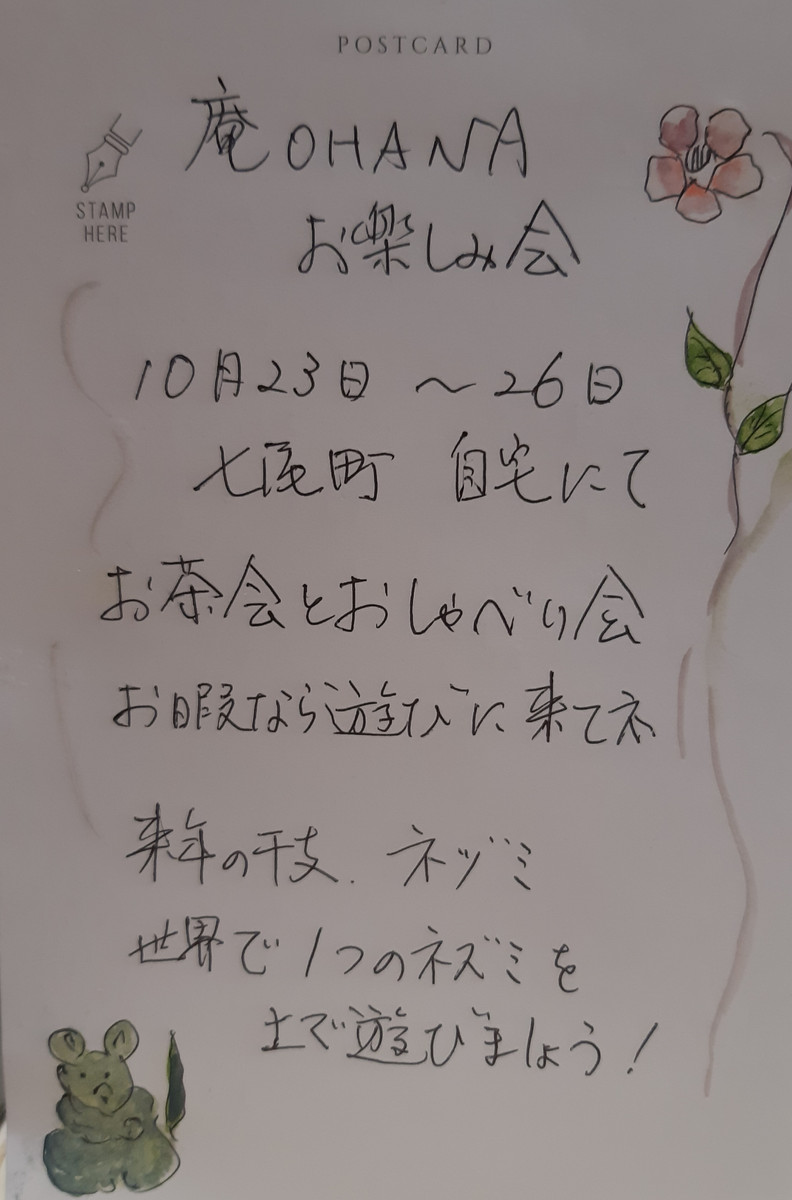 POSTCARD
STAMP
HERE
庵OHANA
お楽しみ会
10月23日 ～26日
七尾町 自宅にて
お茶会とおしゃべり会
お暇なら遊びに来てネ
来年の干支. ネヅミ
世界で1つのネズミを
土で遊びましょう!